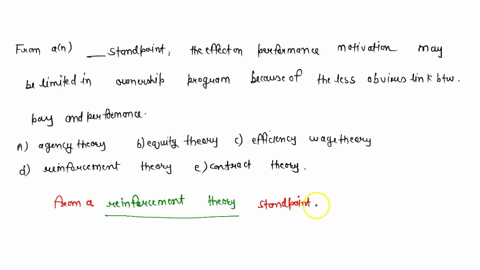 From a(n) __ standpoint, the effect on performance motivation may
be limited in ownership program because of the less obvious link btw.
pay and performance.
A) agency theory b) equity theory c) efficiency wage theory
d) reinforcement theory e) contract theory.
from a reinforcement theory standpoint.